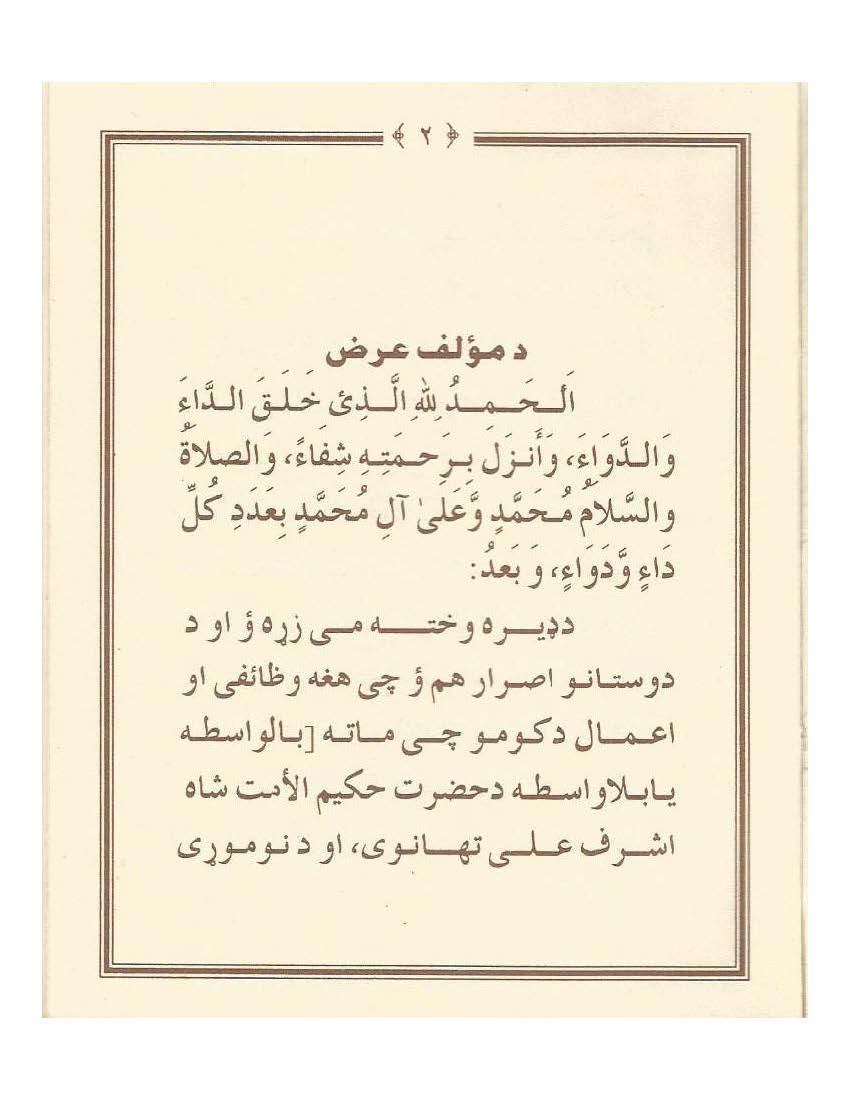 ﴿ ٢ ﴾
د مؤلف عرض
اَلْحَمِدُ لِلّٰهِ الَّذِیْ خَلَقَ الدَّاءَ
وَالدَّوَاءَ، وَأَنزَل بِرَحمَتِهِ شِفَاءً، وَالصلاةُ
والسَّلامُ مُحَمَّدٍ وَّعَلىٰ آلِ مُحَمَّدٍ بِعَدَدِ كُلِّ
دَاءٍ وَّدَوَاءٍ، وَ بَعَدُ:
دډیره وخته می زړه ؤ او د
دوستانو اصرار هم ؤ چی هغه وظائفی او
اعمال دکومو چی ماته [بالواسطه
یابلاواسطه دحضرت حکیم الأمت شاه
اشرف علی تهانوی، او د نوموړی